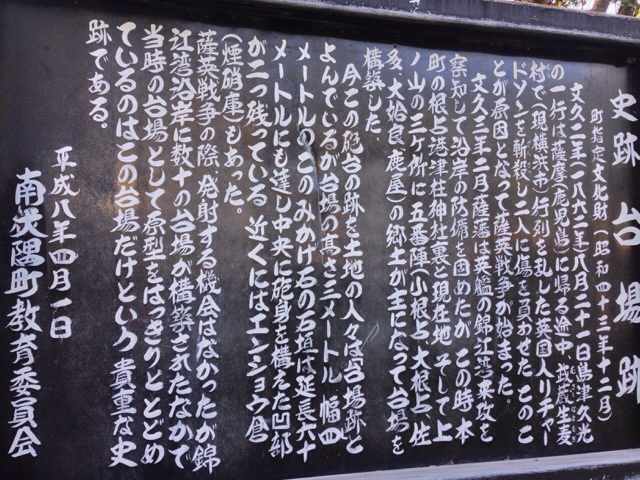 史跡 台場跡
町指定文化財(昭和四十三年十二月)
文久二年(一八六二年)八月二十一日島津久光
の一行は薩摩(鹿児島)に帰る途中、武蔵生麦
村で(現横浜市)行列を乱した英国人リチャー
ドソンを斬殺し二人に傷を負わせた このこ
とが原因となって薩英戦争が始まった。
文久三年二月薩藩は英艦の錦江湾来攻を
察知して沿岸の防備を固めたが、この時本
町の根占港津柱神社裏と現在地 そして上
ノ山の三ケ所に五番陣(小根占、大根占、佐
多、大姶良、鹿屋)の郷士が主になって台場を
構築した。
今この砲台の跡を土地の人々は台場跡と
よんでいるが台場の高さ三メートル 幅四
メートル このみかげ石の石垣は延長六十
メートルにも達し中央に砲身を構えた凹部
が二つ残っている 近くにはエンショウ倉
(煙硝庫)もあった。
薩英戦争の際、発射する機会はなかったが錦
江湾沿岸に数十の台場が構築されたなかで
当時の台場として原型をはっきりととどめ
ているのはこの台場だけという貴重な史
跡である。
平成八年四月一日
南大隅町教育委員会